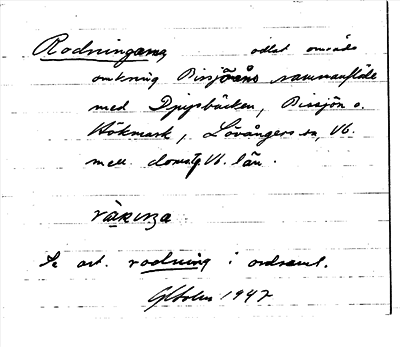 Rodningarna odlat område
omkring Bissjöåns sammanflöde
med Djupbäcken, Bissjön o.
Hökmark, Lövångers sn, Vb.
mell. doms. Vb. län.
Se art. rodning i ordsaml.
G Holm 1947